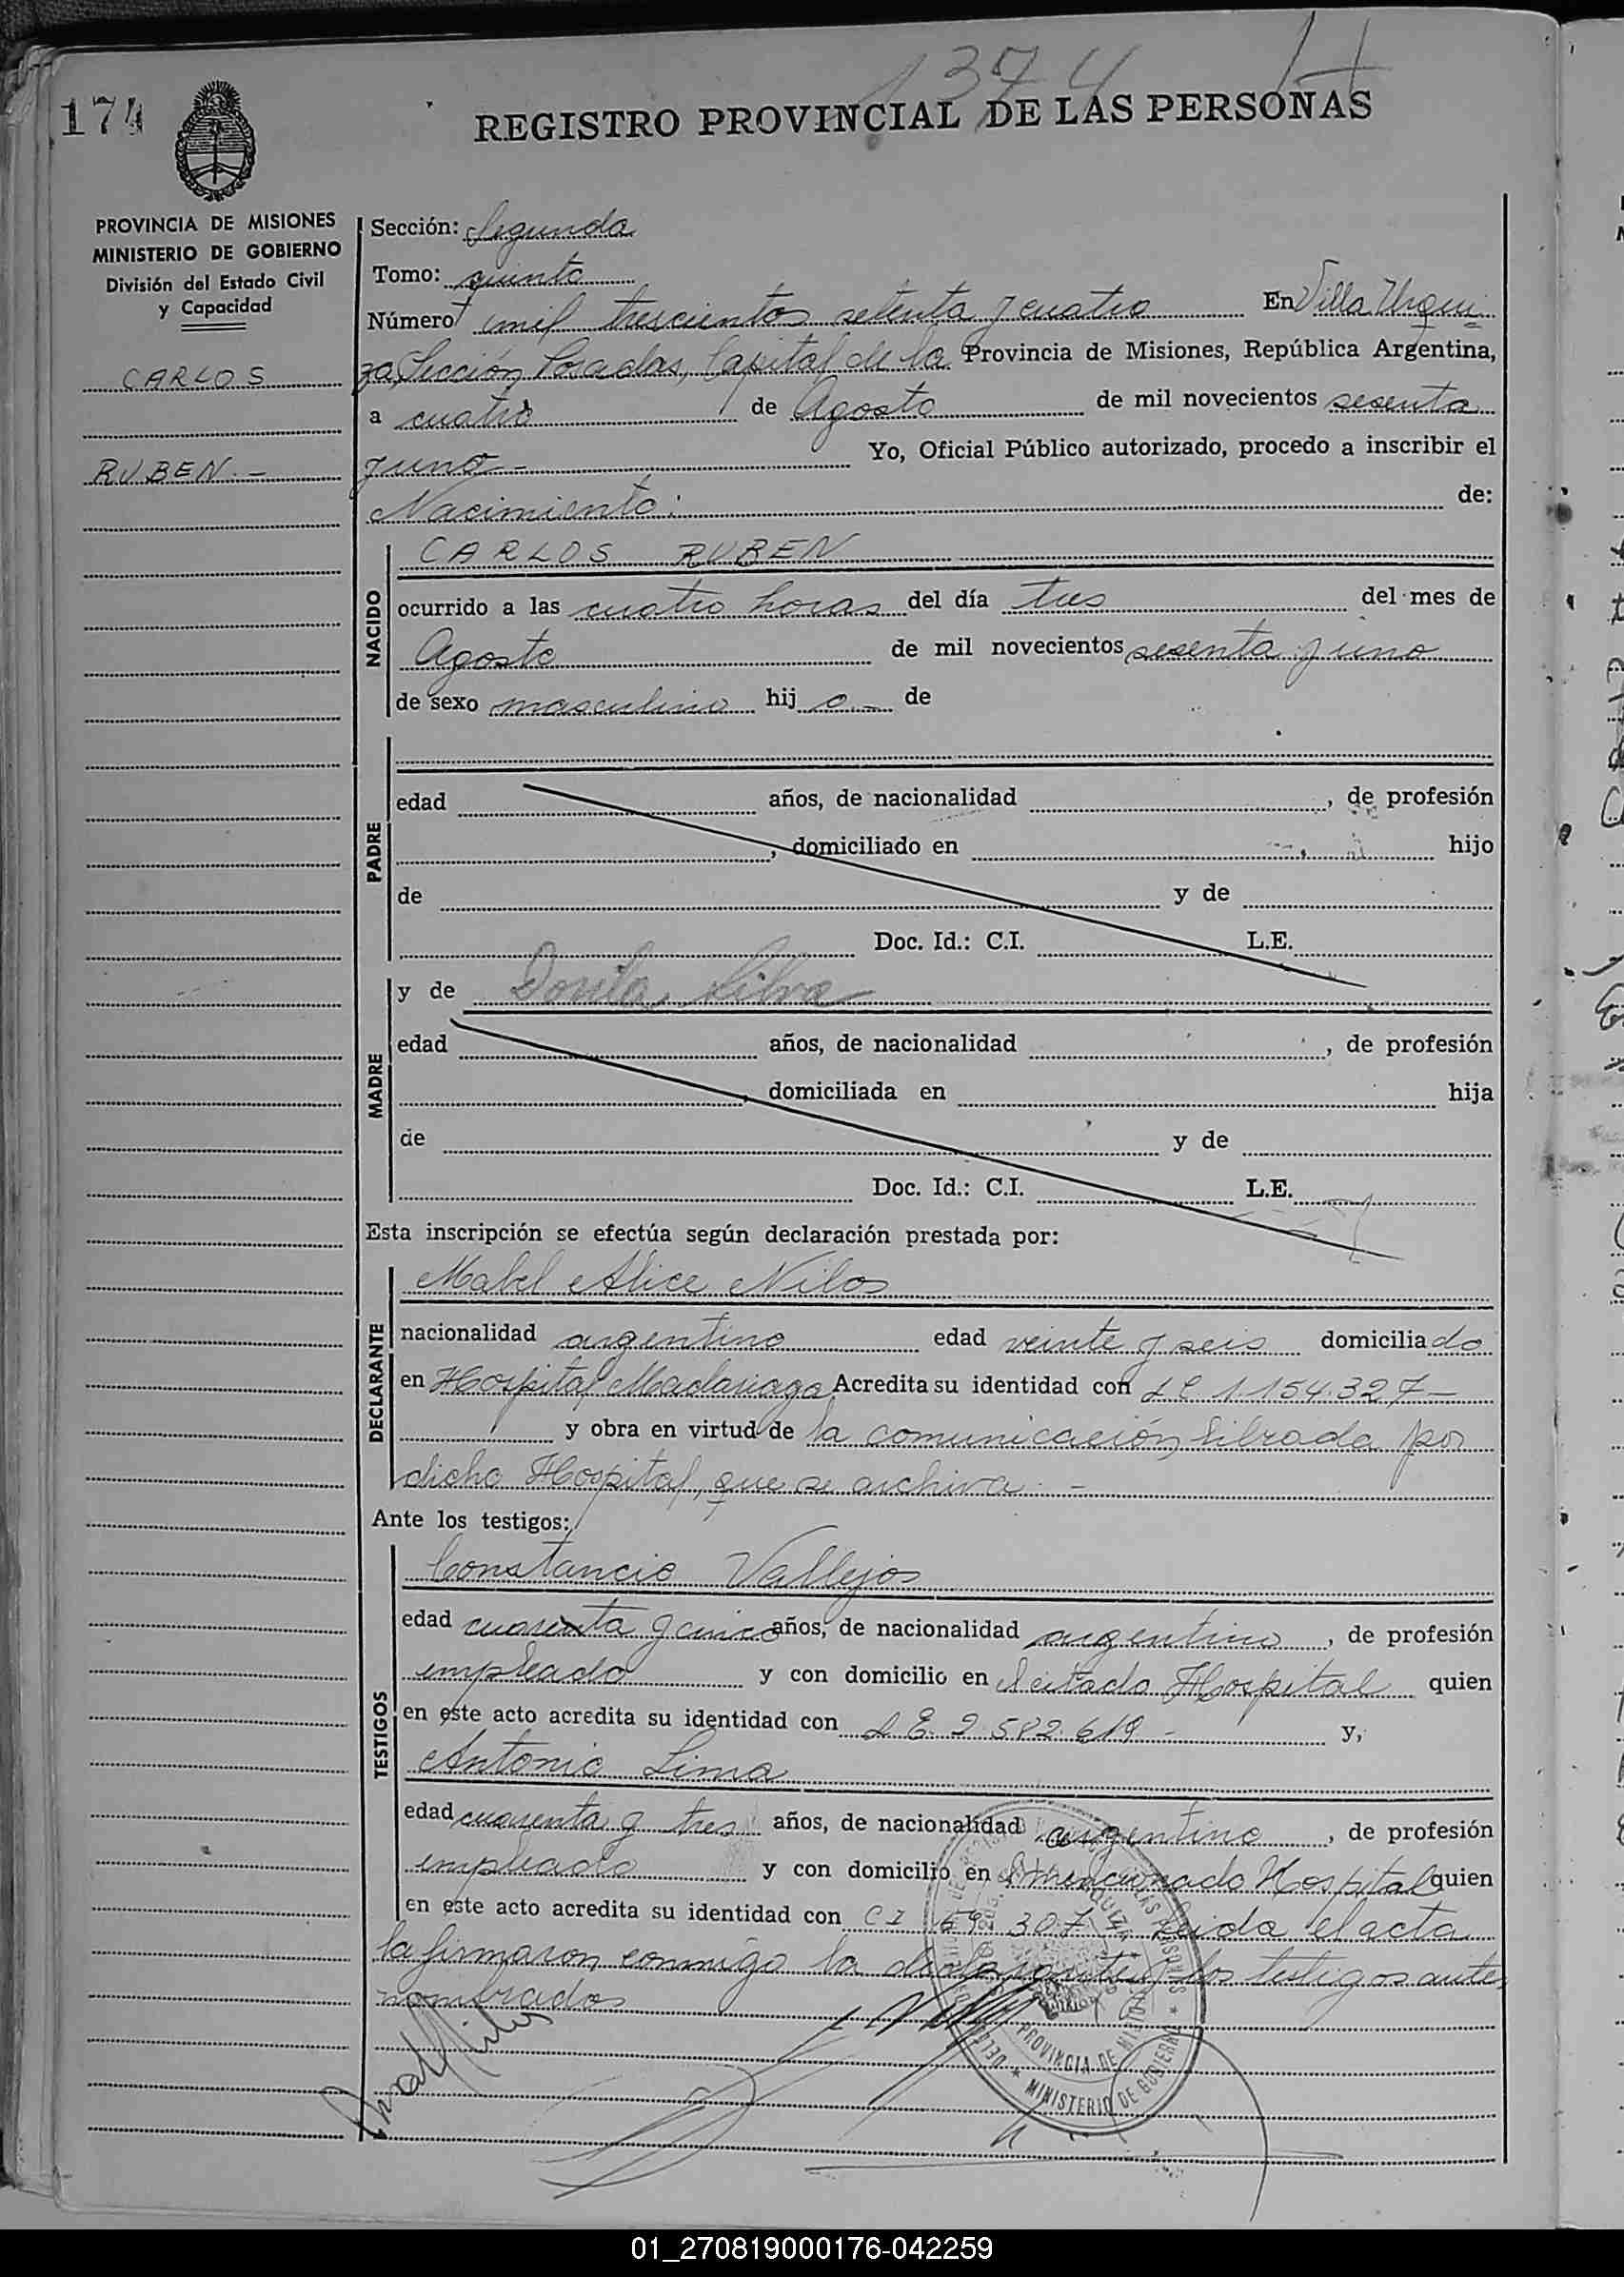 1374
174
REGISTRO PROVINCIAL DE LAS PERSONAS
PROVINCIA DE MISIONES
MINISTERIO DE GOBIERNO
División del Estado Civil
y Capacidad
CARLOS
RUBEN.-
Sección: Segunda
Tomo: quinto
Número mil trescientos setenta y cuatro En Villa Urqui
za, Sección Posadas, Capital de la Provincia de Misiones, República Argentina,
a cuatro de Agosto de mil novecientos sesenta
y uno - Yo, Oficial Público autorizado, procedo a inscribir el
Nacimiento: de:
NACIDO
CARLOS RUBEN
ocurrido a las cuatro horas del día tres del mes de
Agosto de mil novecientos sesenta y uno
de sexo masculino hij o.- de
PADRE
edad años, de nacionalidad , de profesión
, domiciliado en , hijo
de y de
Doc. Id.: C.I. L.E.
MADRE
y de Silva
edad años, de nacionalidad , de profesión
domiciliada en hija
de y de
Doc. Id.: C.I. L.E.
Esta inscripción se efectúa según declaración prestada por:
DECLARANTE
Mabel Alice Nilos
nacionalidad argentino edad veinte y seis domicilia do
en Hospital Madariaga Acredita su identidad con LC 1.154.327-
y obra en virtud de la comunicación librada por
dicho Hospital, que se archiva.-
Ante los testigos:
TESTIGOS
Constancio Vallejos
edad cuarenta y cinco años, de nacionalidad argentino , de profesión
empleado y con domicilio en el citado Hospital quien
en este acto acredita su identidad con L E. 2.582.619 - y,
Antonio Lima
edad cuarenta y tres años, de nacionalidad argentino , de profesión
empleado y con domicilio en el mencionado Hospital quien
en este acto acredita su identidad con CI 69.307 Leida el acta
la firmaron conmigo la declarante y los testigos antes
nombrados
PROVINCIA DE MISIONES
MINISTERIO DE GOBIERNO
01_270819000176-042259